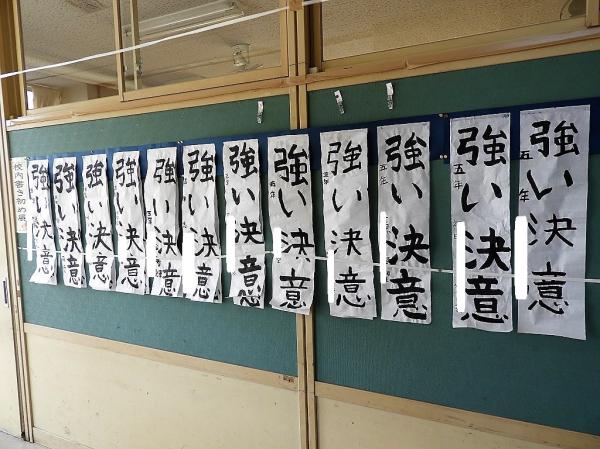 校内書き初め展
強い決意
強い決意
強い決意
強い決意
強い決意
強い決意
強い決意
強い決意
五年
強い決意
五年
強い決意
五年
強い決意
五年
強い決意
五年